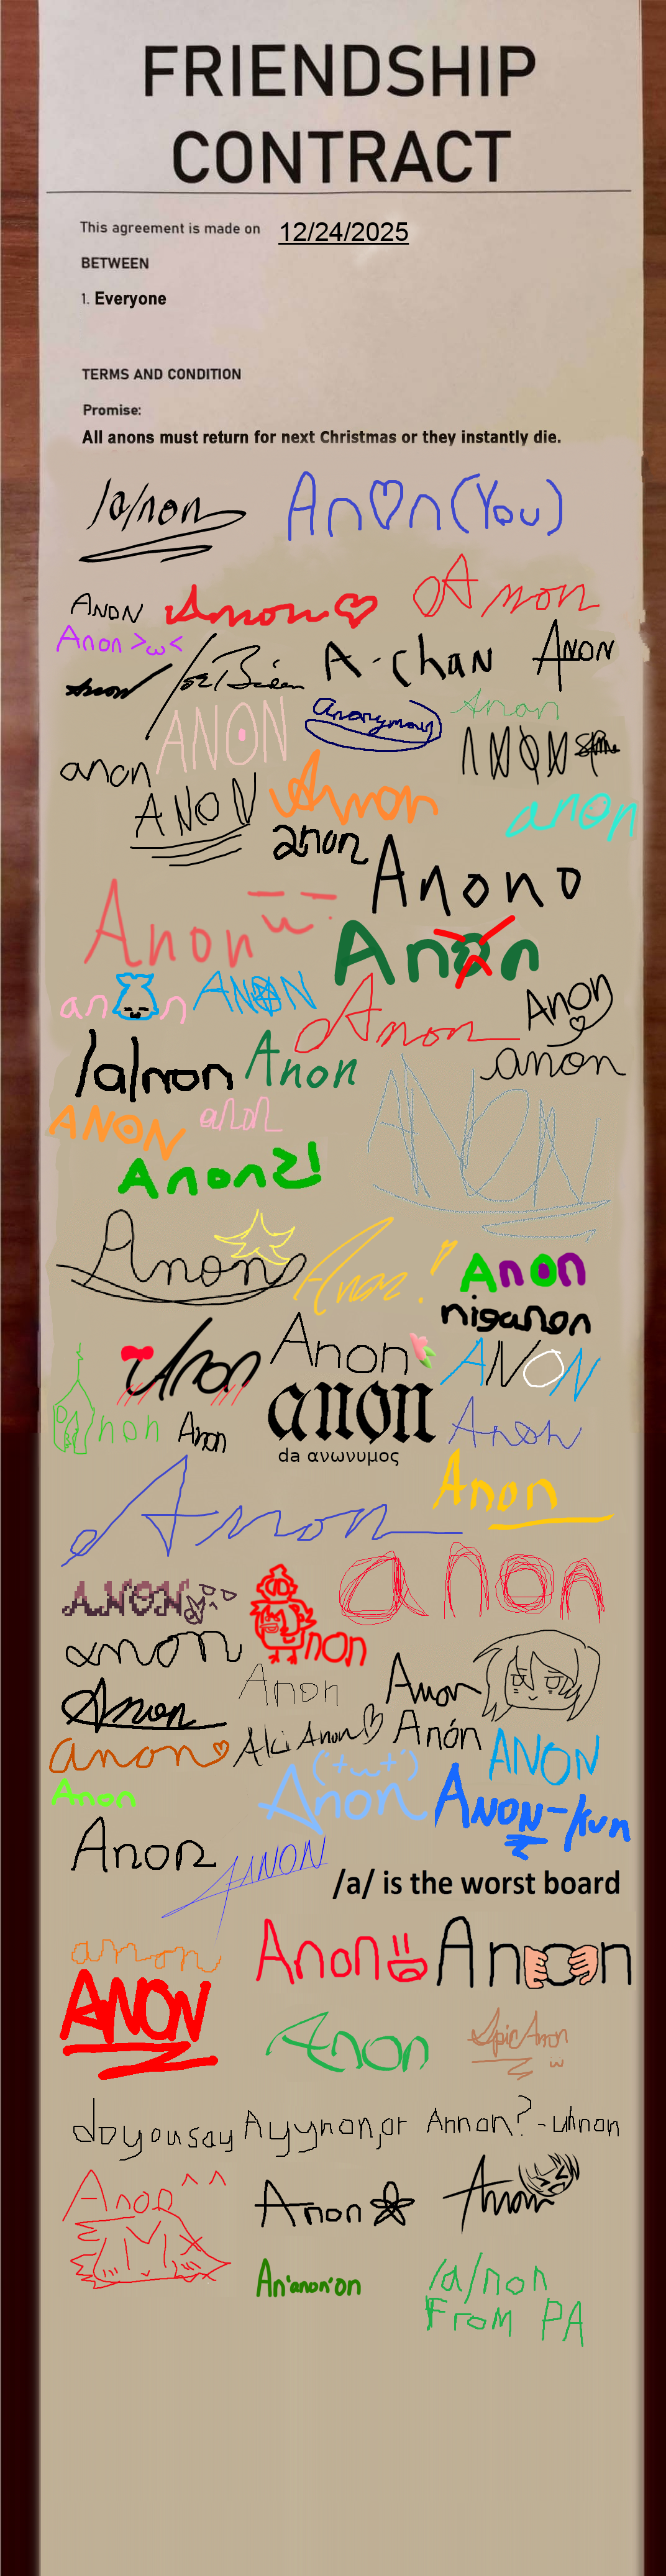 FRIENDSHIP
CONTRACT
This agreement is made on 12/24/2025
BETWEEN
1. Everyone
TERMS AND CONDITION
Promise:
All anons must return for next Christmas or they instantly die.
/a/non
An♡n(You)
ANON
Anon♡
Anon
Anon >ω<
Anon
Joe Biden
A-chan
ANON
ANON
Anonymous
Anon
anon
ANON
ANON
Anon
anon
anon
Anono
Anon
Anon
an n
ANON
Anon
Anon
/a/non
Anon
anon
ANON
anon
ANON
Anonz!
Anon
Anon!
Anon
niganon
Anon
Anon
ANON
non
Anon
anon
da ανωνυμος
Anon
Anon
Anon
ANON
non
anon
anon
Anon
Anon
Anon
anon♡
Aki Anon♡
Anón
ANON
Anon
('+ω+')
Anon
ANON-kun
Anon
ANON
/a/ is the worst board
anon
Anon
Anon
ANON
Anon
Epic Anon
ω
do you say Ayynon, or Annon? - unnon
Anon ^^
Anon
Anon
An'anon'on
/a/non
From PA